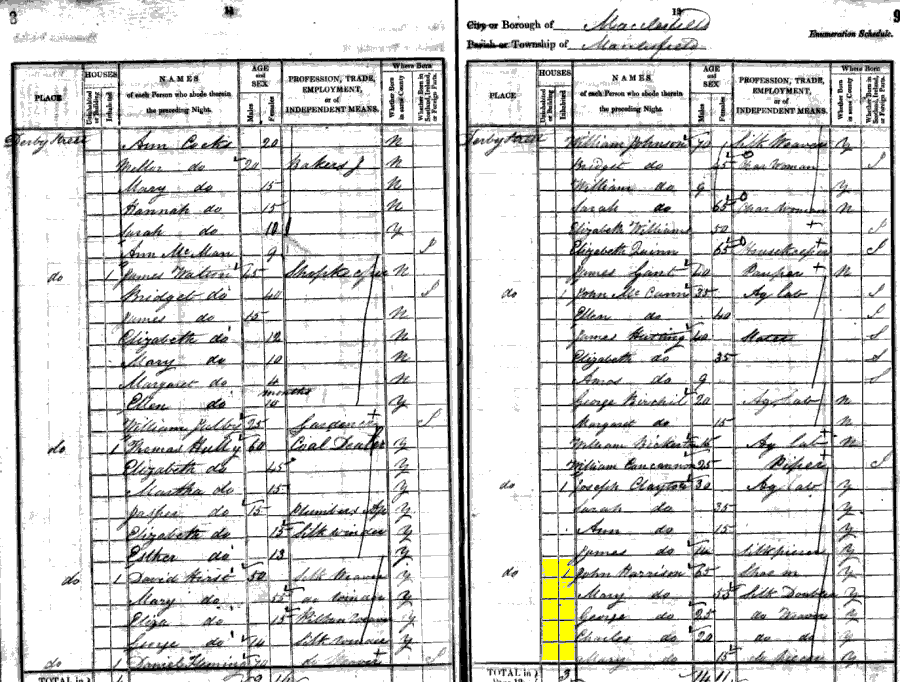 8
11
PLACE
HOUSES
Uninhabited or Building
Inhabited
NAMES
of each Person who abode therein the preceding Night.
AGE and SEX
Males
Females
PROFESSION, TRADE, EMPLOYMENT, or of INDEPENDENT MEANS.
Where Born
Whether Born in same County
Whether Born in Scotland, Ireland, or Foreign Parts.
Derby Street Ann Cocks 20 N
do 20 Bakers J N
Mary do 15 N
Hannah do 15 N
Sarah do 10 Y
Ann McMan 9 I
do 1 James Watson 45 Shopkeeper N
Bridget do 40 I
James do 15 N
Elizabeth do 12 N
Mary do 10 N
Margaret do 4 N
Ellen do months 10 Y
William 25 Gardener I
do 1 Thomas Hulley 60 Coal Dealer Y
Elizabeth do 45 Y
Martha do 15 Y
Jasper do 15 Plumbers Ap Y
Elizabeth do 15 Silk winder Y
Esther do 13 Y
do 1 David Hirst 50 Silk Weaver Y
Mary do 55 do winder Y
Eliza do 15 Ribbon Weaver Y
George do 14 Silk Y
do 1 Daniel Fleming 70 do Weaver I
TOTAL in
9
12
City or Borough of Macclesfield
Parish or Township of Macclesfield
Enumeration Schedule.
PLACE
HOUSES
Uninhabited or Building
Inhabited
NAMES
of each Person who abode therein the preceding Night.
AGE and SEX
Males
Females
PROFESSION, TRADE, EMPLOYMENT, or of INDEPENDENT MEANS.
Where Born
Whether Born in same County
Whether Born in Scotland, Ireland, or Foreign Parts.
Derby Street William Johnson 70 Silk Weaver Y
Bridget do 45 Char Woman I
William do 9 Y
Sarah do 65 Char Woman N
Elizabeth Williams 50 I
Elizabeth Quinn 65 Housekeeper I
James Gant 60 Pauper N
do 1 John McCann 35 Ag lab I
Ellen do 40 I
James 40
Elizabeth do 35
Amos do 9
George Birchil 20 Ag lab N
Margaret do 15 N
William Ag lab N
William Concannon 25 Piper I
do 1 Joseph Clayton 30 Ag lab Y
Sarah do 35 Y
Ann do 15 Y
James do 14 Silk piecer Y
do 1 John Harrison 65 Shoe m Y
Mary do 55 Silk Doubler Y
George do 25 do Weaver Y
Charles do 20 do do Y
Mary do 15 do Piecer Y
TOTAL in 3 14 11